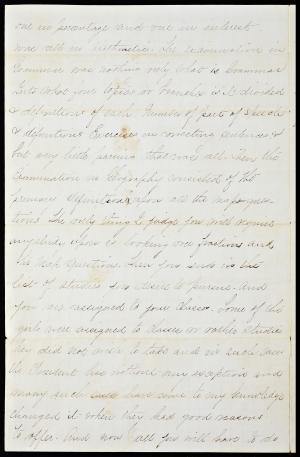 one in percentage and one in interest
were all in Arithmetic. The examination in
Grammar was nothing only what is Grammar
Into what four topics or branches is it divided
& definitions of each. Number of part of speech
& definitions Exercise in correcting sentences &
but very little parsing that was all. Then the
examination in Geography consisted of the
primary definitions then all the map ques-
tions. The only thing to judge you with
is looking over fractions and
the map questions. Then you send in the
list of studies you desire to pursue. And
you are assigned to your classes. Some of the
girls were assigned to classes or rather studies
they did not wish to take and in such case
the President has not one exception and
many such have come to my knowledge
changed it when they had good reasons
to offer. And now all you will have to do